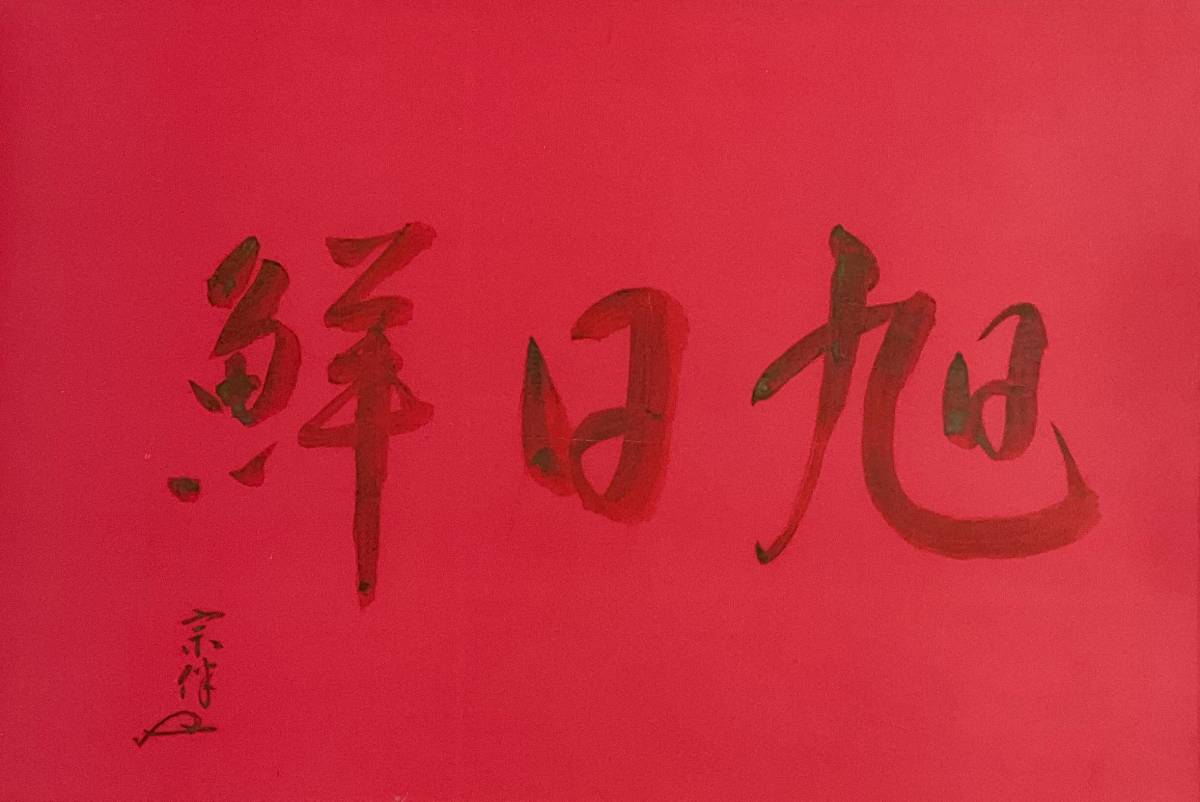 旭日鮮
宗伴